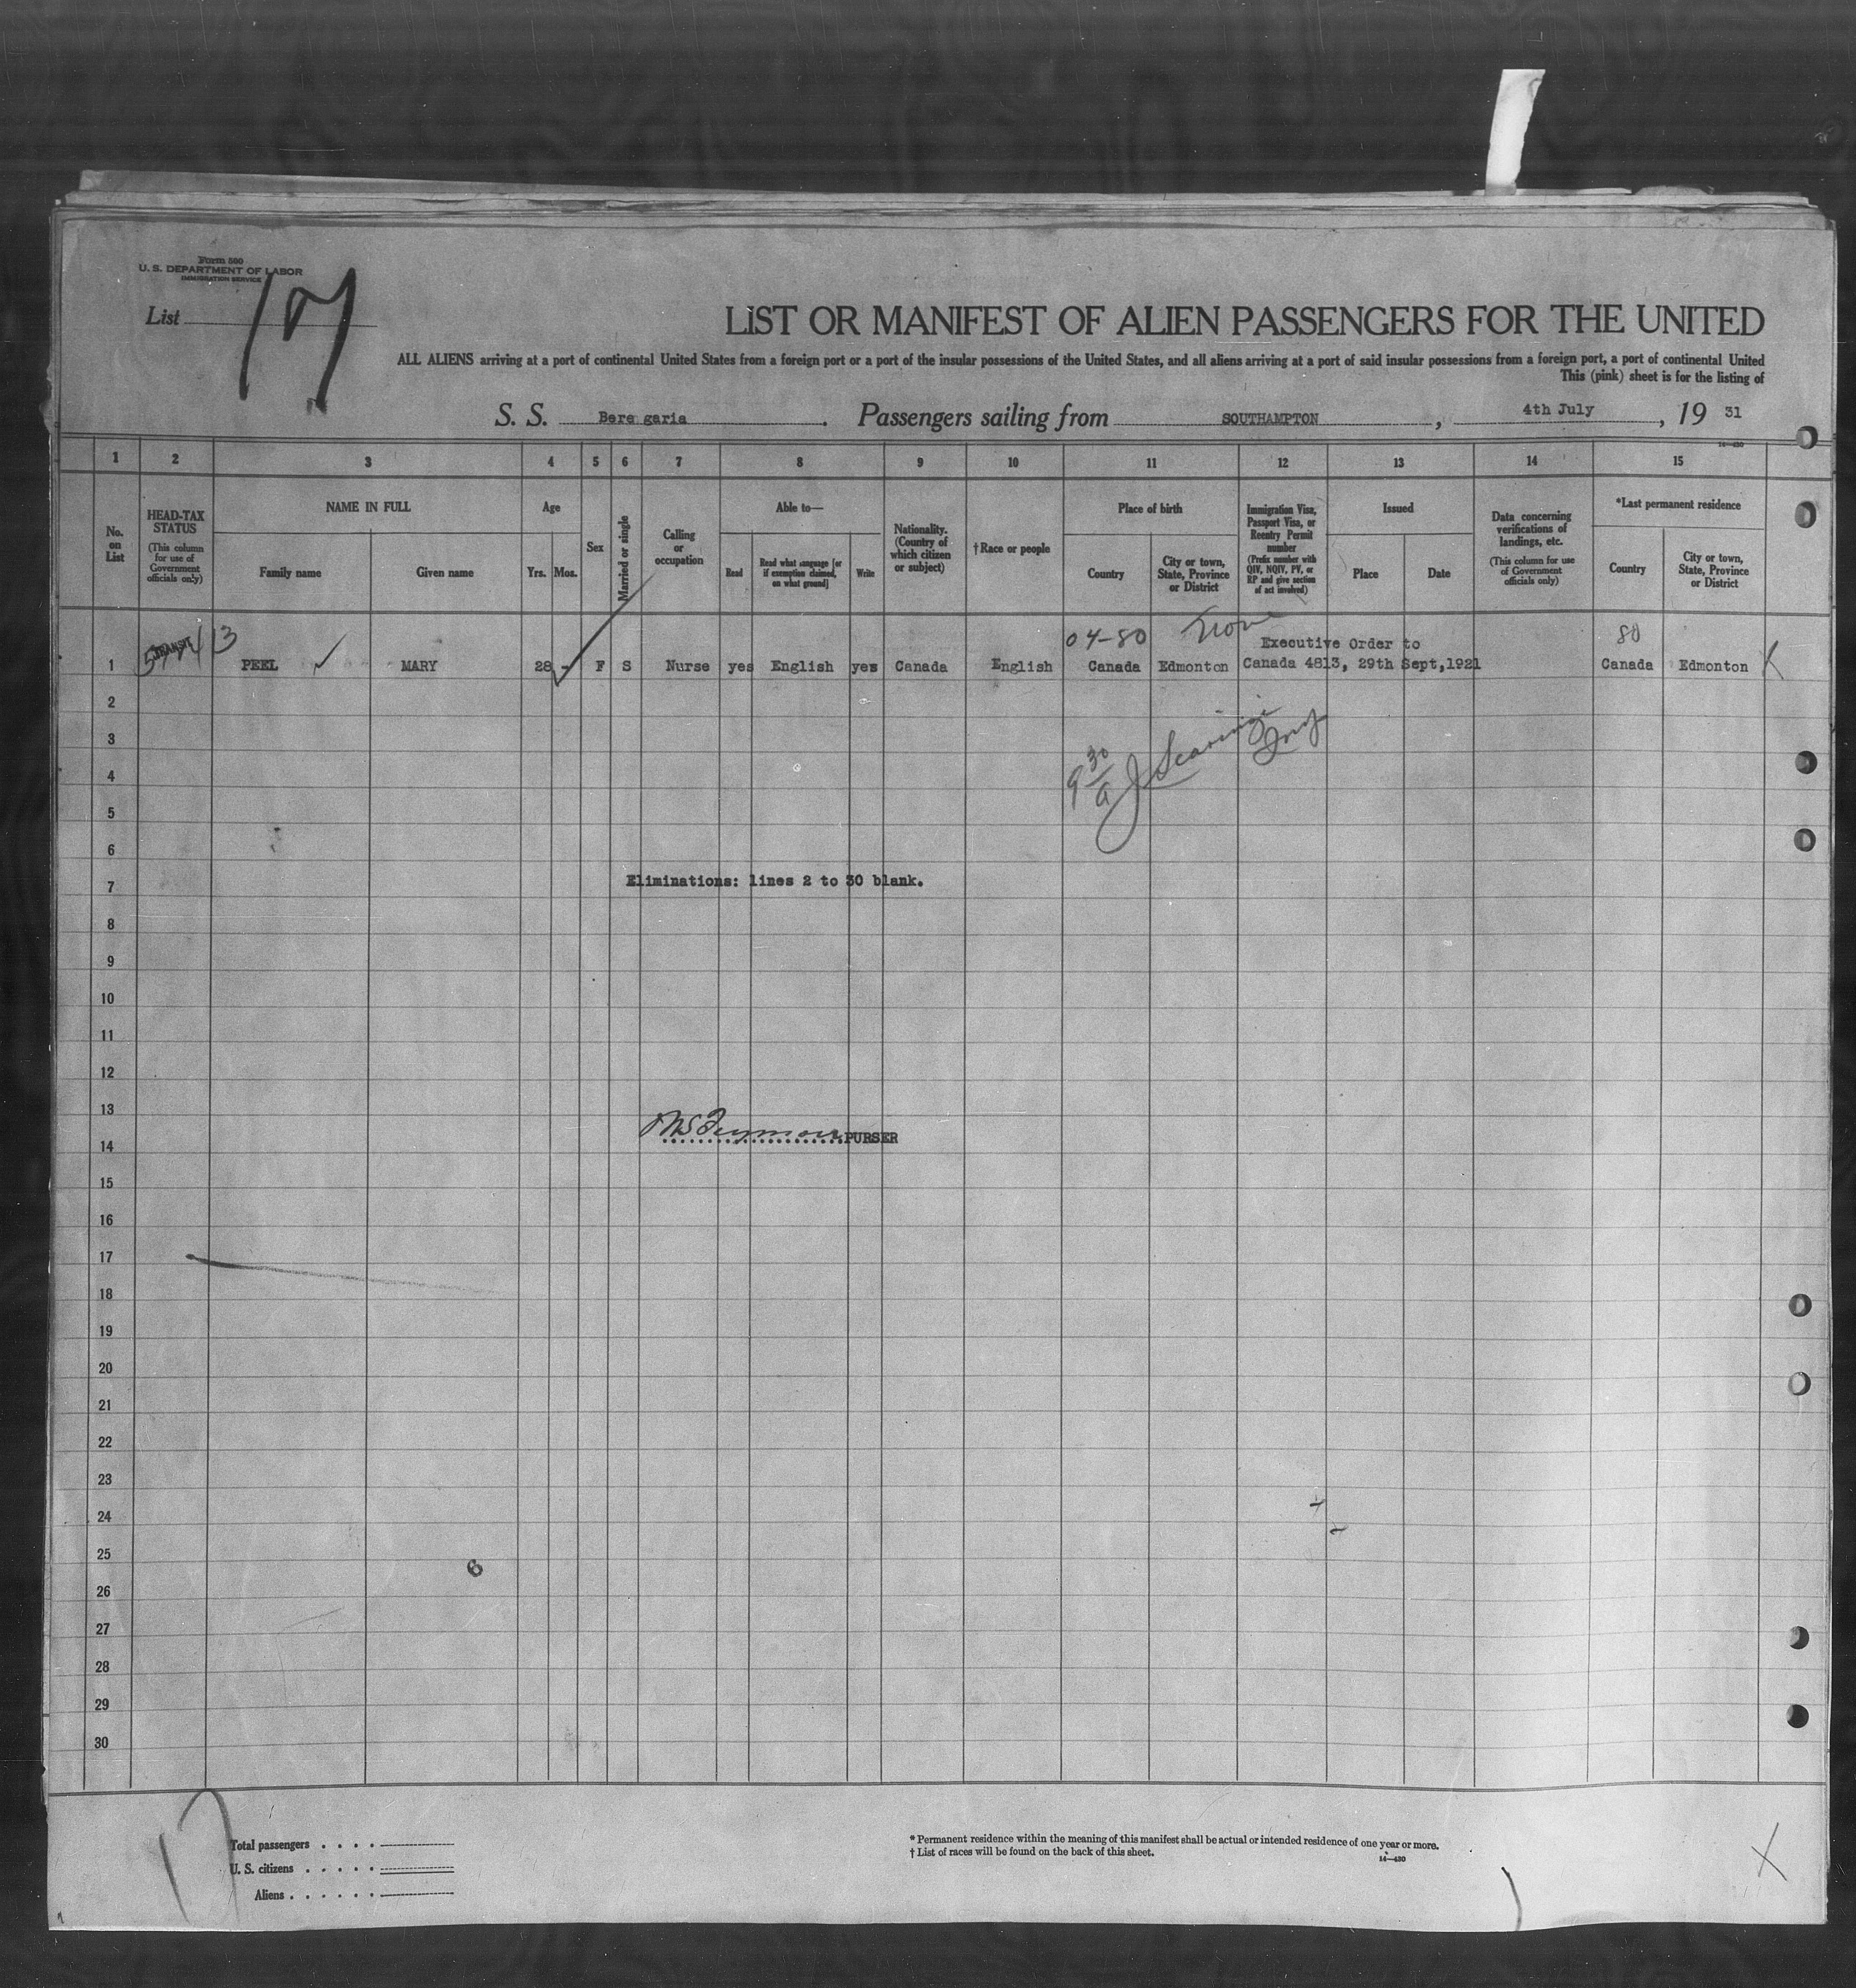 Form 500
U. S. DEPARTMENT OF LABOR
IMMIGRATION SERVICE
List
LIST OR MANIFEST OF ALIEN PASSENGERS FOR THE UNITED
ALL ALIENS arriving at a port of continental United States from a foreign port or a port of the insular possessions of the United States, and all aliens arriving at a port of said insular possessions from a foreign port, a port of continental United
This (pink) sheet is for the listing of
S. S. Bere garia . Passengers sailing from SOUTHAMPTON , 4th July , 19 31
14—430
1 2 3 4 5 6 7 8 9 10 11 12 13 14 15
No. on List
HEAD-TAX STATUS
(This column for use of Government officials only)
NAME IN FULL
Family name
Given name
Age
Yrs. Mos.
Sex
Married or single
Calling or occupation
Able to—
Read
Read what language [or if exemption claimed, on what ground]
Write
Nationality. (Country of which citizen or subject)
†Race or people
Place of birth
Country
City or town, State, Province or District
Immigration Visa, Passport Visa, or Reentry Permit number
(Prefix number with QIV, NQIV, PV, or RP and give section of act involved)
Issued
Place
Date
Data concerning verifications of landings, etc.
(This column for use of Government officials only)
*Last permanent residence
Country
City or town, State, Province or District
04-80 None Executive Order to 80
1 PEEL MARY 28 - F S Nurse yes English yes Canada English Canada Edmonton Canada 4813, 29th Sept,1921 Canada Edmonton
2
3
4
5
6
7 Eliminations: lines 2 to 30 blank.
8
9
10
11
12
13
14 PURSER
15
16
17
18
19
20
21
22
23
24
25
26
27
28
29
30
Total passengers . . . .
U. S. citizens . . . . .
Aliens . . . . . .
* Permanent residence within the meaning of this manifest shall be actual or intended residence of one year or more.
† List of races will be found on the back of this sheet.
14—430